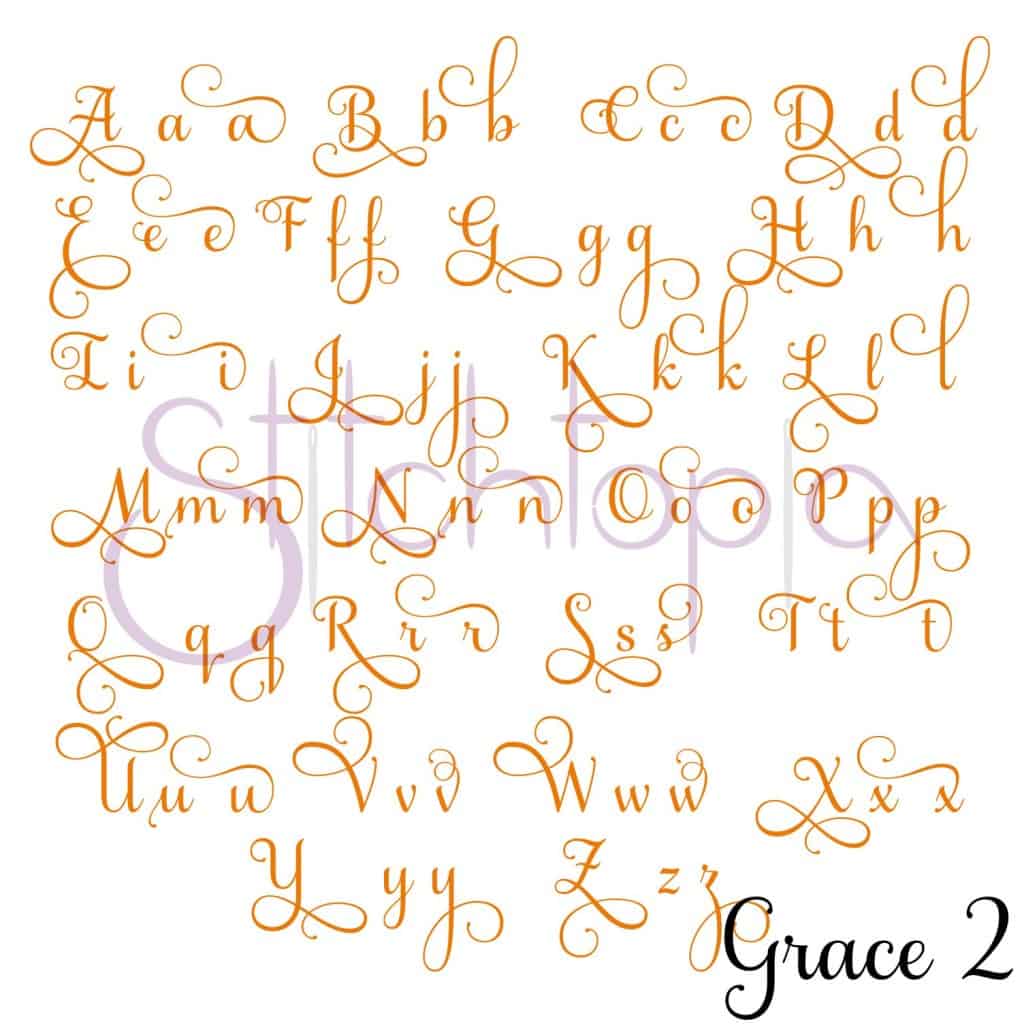 A a a B b b C c c D d d
E e e F f f G g g H h h
I i i J j j K k k L l l
M m m N n n O o o P p p
Stitchtopia
Q q q R r r S s s T t t
U u u V v v W w w X x x
Y y y Z z z
Grace 2